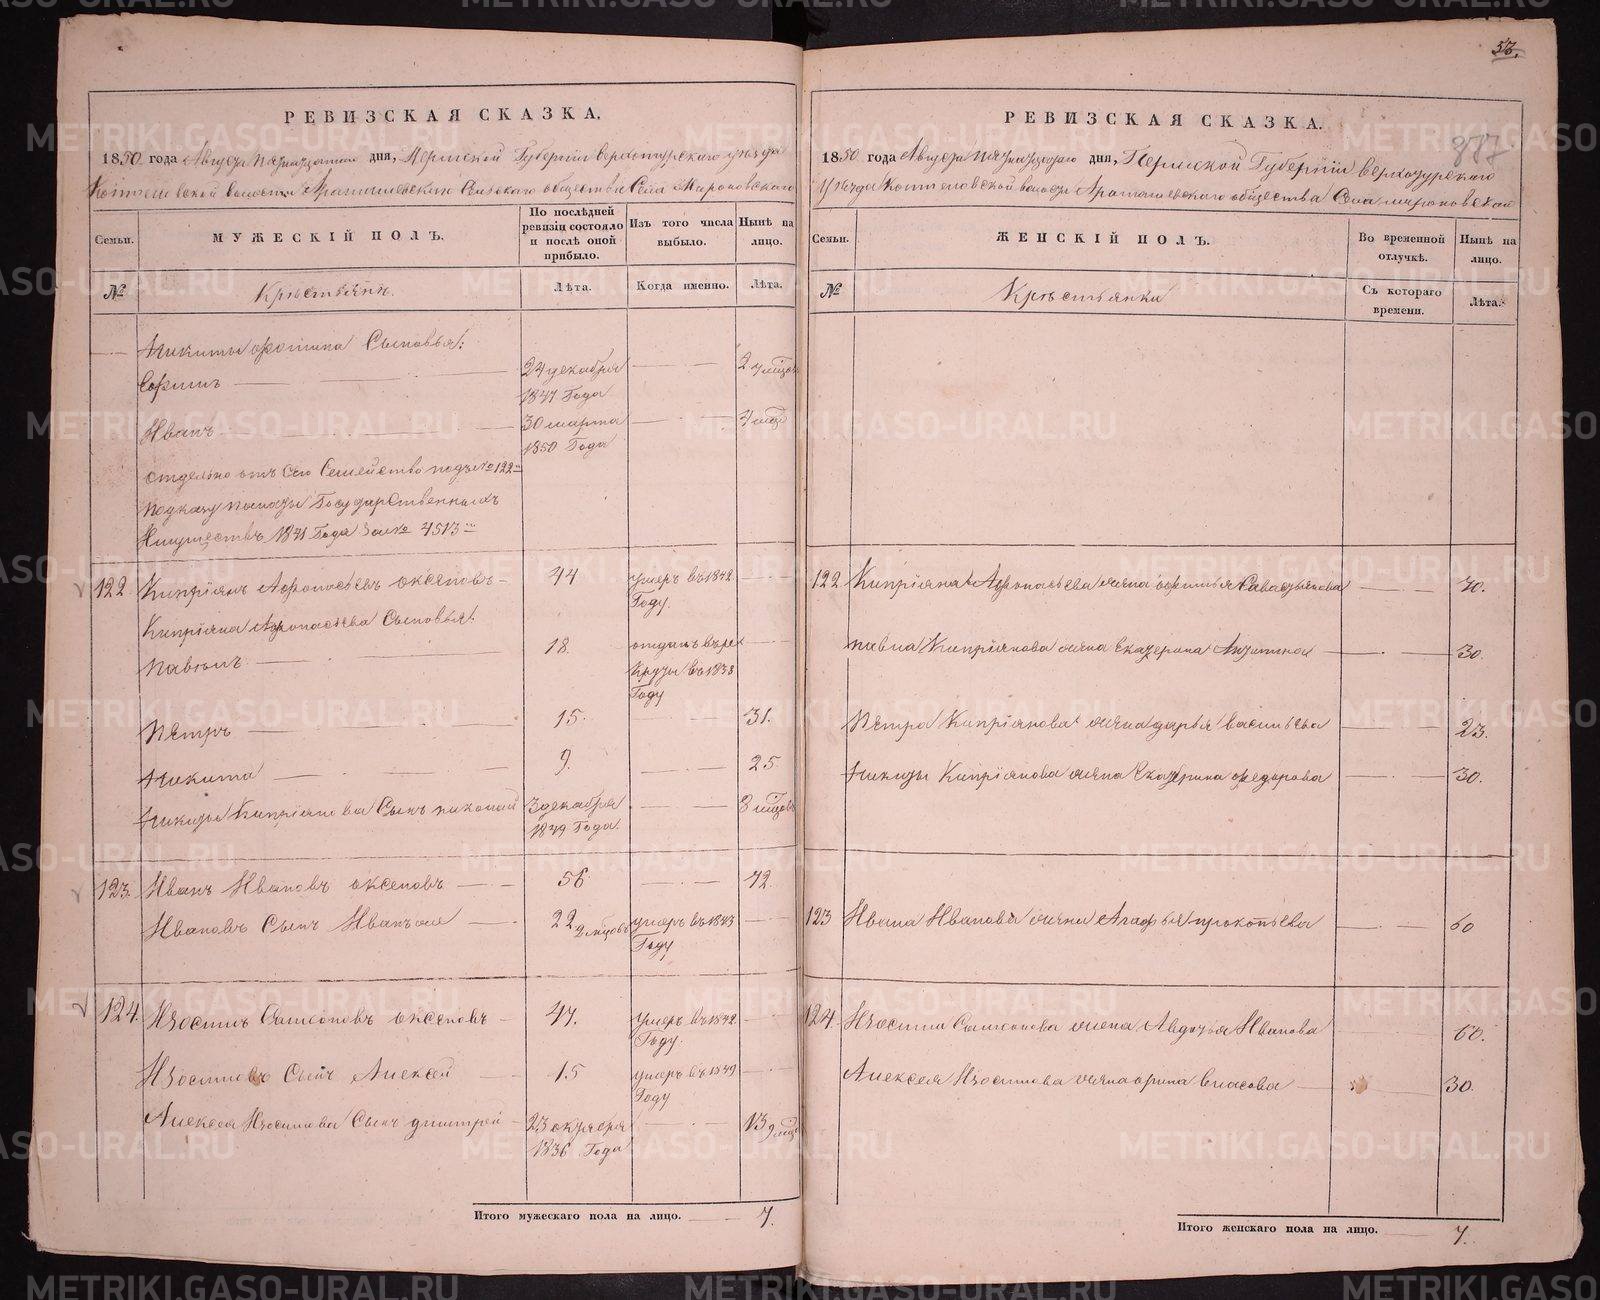 РЕВИЗСКАЯ СКАЗКА.
1850 года Августа пятнатцатаго дня, Пермской Губернiи верхотурскаго уезда
волости Сельскаго общества Села Мироновскаго
Семьи.
МУЖЕСКІЙ ПОЛЪ.
По послѣдней ревизіи состояло и послѣ оной прибыло.
Изъ того числа выбыло.
Нынѣ на лицо.
№
Крестьяне.
Лѣта.
Когда именно.
Лѣта.
Никиты Сыновья:
Ефимъ — 24 декабря 1847 Года — 2
Иванъ — 30 марта 1850 Года — 4
отдельно отъ Сего Семейство подъ № 122
по указу палаты Государственныхъ
Имуществъ, 1841 Года За № 4513
122 Кипріянъ Афонасьевъ оксеновъ — 44 умеръ въ 1842 Году.
Кипріяна Афонасьева Сыновья:
Павелъ — 18. отданъ в рекруты въ 1838 Году
Петръ — 15. — 31.
Никита — 9. — 25
Никиты Кипріянова Сынъ николай 3 декабря 1849 Года. — 8 мцовъ
123. Иванъ Ивановъ оксеновъ — 56 — 72.
Ивановъ Сынъ — 22 умеръ въ 1843 Году
124. Изосимъ оксеновъ — 47. умеръ въ 1842 Году.
Изосимовъ Сынъ Алексей — 15 умеръ въ 1849 Году
Алексея Изосимова Сынъ дмитрей — 23 октября 1836 Года — 13 9
Итого мужескаго пола на лицо. — 7.
58.
877
РЕВИЗСКАЯ СКАЗКА.
1850 года Августа пятнатцатаго дня, Пермской Губернiи верхотурскаго
уезда волости общества Села мироновскаго
Семьи.
ЖЕНСКІЙ ПОЛЪ.
Во временной отлучкѣ.
Нынѣ на лицо.
№
Крестьянки
Съ котораго времени.
Лѣта.
122 Кипріяна Афонасьева жена — 70.
павла Кипріянова жена Екатерина — 30.
Петра Кипріянова жена дарья васильева — 23.
Никиты Кипріянова жена Екатерина федорова — 30.
123 Ивана Иванова жена Агафья прокопьева — 60
124. Изосима жена Авдотья Иванова — 60.
Алексея Изосимова жена орина власова — 30.
Итого женскаго пола на лицо. — 7.
METRIKI.GASO-URAL.RU